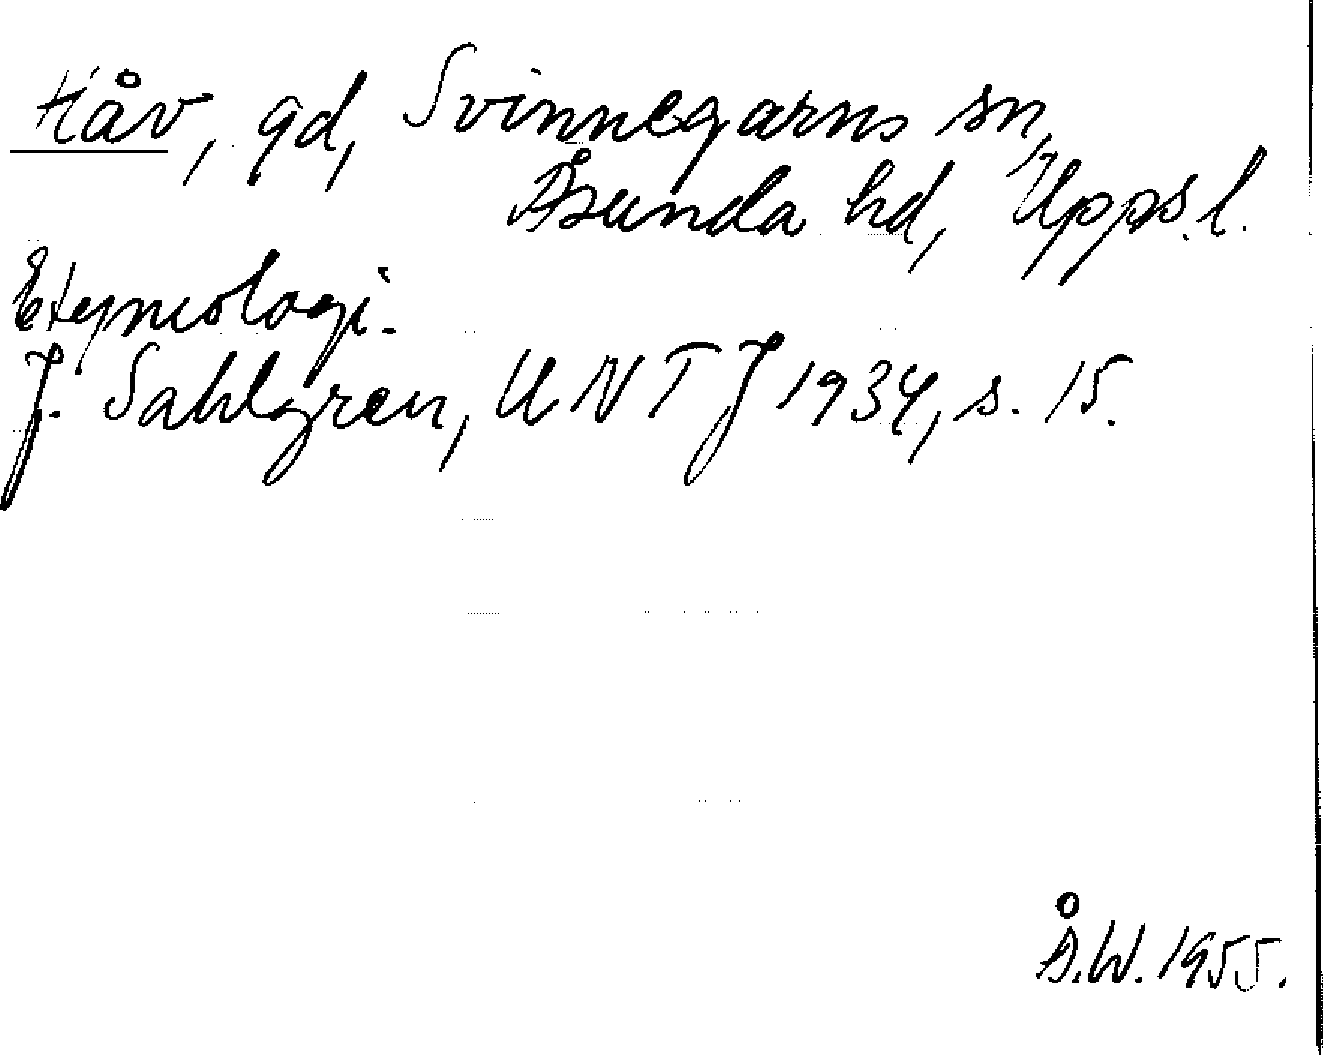 Håv, gd, Svinnegarns sn,
Åsunda hd, Upps.l.
Etymologi.
J. Sahlgren, UNTJ 1934, s. 15.
Å.W. 1955.